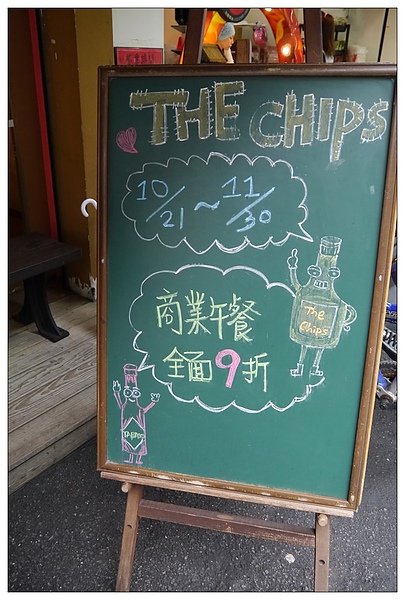 THE CHIPS
10/21 ~ 11/30
The
Chips
商業午餐
全面9折